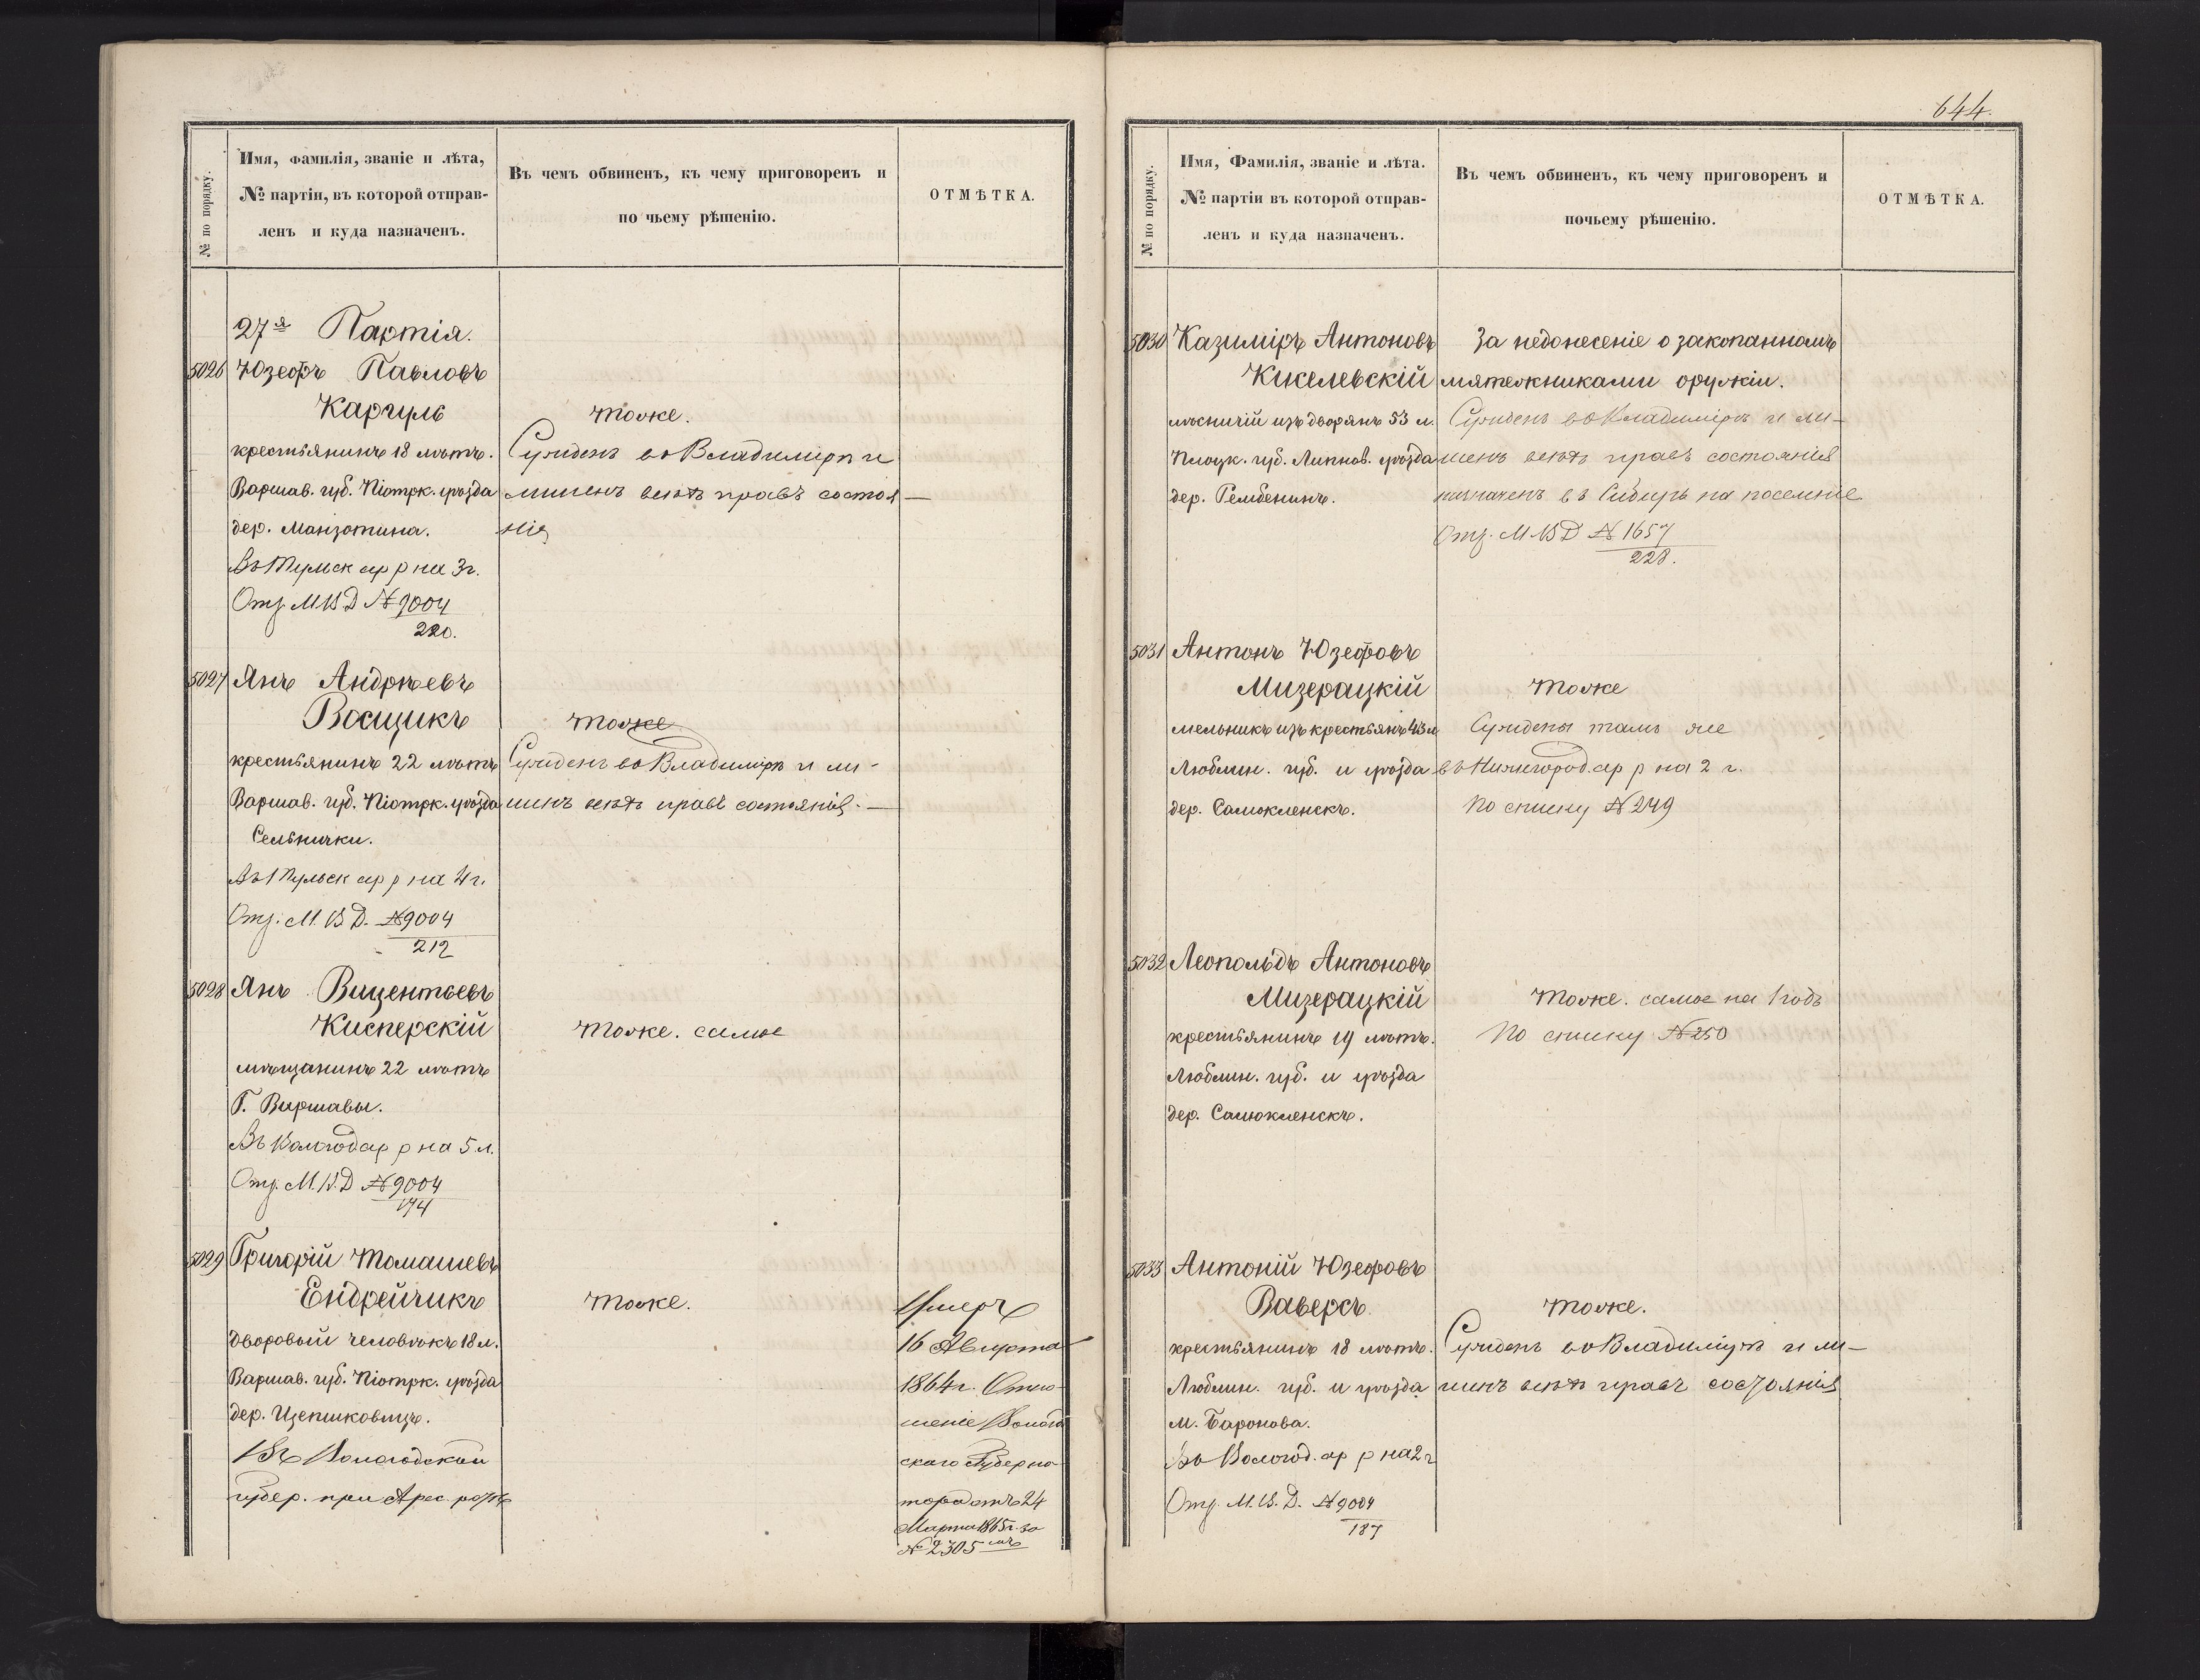 № по порядку.
Имя, фамилія, званіе и лѣта,
№ партіи, въ которой отправ-
ленъ и куда назначенъ.
Въ чемъ обвиненъ, къ чему приговоренъ и
по чьему рѣшенію.
ОТМѢТКА.
27я Партія.
5026 Юзефъ Павловъ
Каргуль
тоже.
крестьянинъ 18 лѣтъ.
Варшав. губ. Піотрк. уѣзда
дер.
Въ Тульск ар р на 3г.
Отз. М В Д № 9004
220.
Сужденъ во Владимірѣ и
лишенъ всѣхъ правъ состоя—
нія
5027 Янъ Андрѣевъ
Восщикъ
тоже
крестьянинъ 22 лѣтъ
Варшав. губ. Піотрк. уѣзда
Сельнички.
Въ Тульск ар р на 4г.
Отз. М. В Д. № 9004
212
Сужденъ во Владимірѣ и ли-
шенъ всѣхъ правъ состоянія. —
5028 Янъ Вицентьевъ
Кисперскій
тоже. самое
мѣщанинъ 22 лѣтъ
Г. Варшавы.
Въ Вологод ар р на 5 л.
Отз. М. В. Д № 9004
174
5029 Григорій Томашевъ
Ендрейчикъ
тоже.
дворовый человѣкъ 18 л.
Варшав. губ. Піотрк. уѣзда
дер. Щепшковицъ.
Въ Вологодской
губер. при Арес. ротѣ
Умеръ
16 Августа
1864 г. Отно-
шеніе Волого
скаго Губерна-
тора отъ 24
Марта 1865 г. за
№ 2305 мъ
644.
№ по порядку.
Имя, Фамилія, званіе и лѣта.
№ партіи въ которой отправ-
ленъ и куда назначенъ.
Въ чемъ обвиненъ, къ чему приговоренъ и
почьему рѣшенію.
ОТМѢТКА.
5030 Казиміръ Антоновъ
Кикелевскій
лѣсничій изъ дворянъ 53 л.
Плоцк. губ. Липнов. уѣзда
дер. Рембенинъ.
За недонесеніе о закопанномъ
мятежниками оружіи.
Сужденъ во Владимірѣ и ли-
шенъ всѣхъ правъ состоянія
назначенъ въ Сибирь на поселніе
Отз. М В Д № 1657
228.
5031 Антонъ Юзефовъ
Мизерацкій
мельникъ изъ крестьянъ 43 л
Люблин. губ. и уѣзда
дер. Самокленскъ.
тоже
Суждены тамъ же
въ Нижегород. ар р на 2 г.
По списку № 249
5032 Леопольдъ Антоновъ
Мизерацкій
крестьянинъ 19 лѣтъ.
Люблин. губ. и уѣзда
дер. Самокленскъ.
тоже. самое на 1 годъ
По списку № 250
5033 Антоній Юзефовъ
Ваверсъ.
крестьянинъ 18 лѣтъ.
Люблин. губ. и уѣзда
м. Баронова.
Въ Вологод. ар р на 2 г
Отз. М. В. Д. № 9004
187
тоже.
Сужденъ во Владимірѣ и ли—
шенъ всѣхъ правъ состоянія